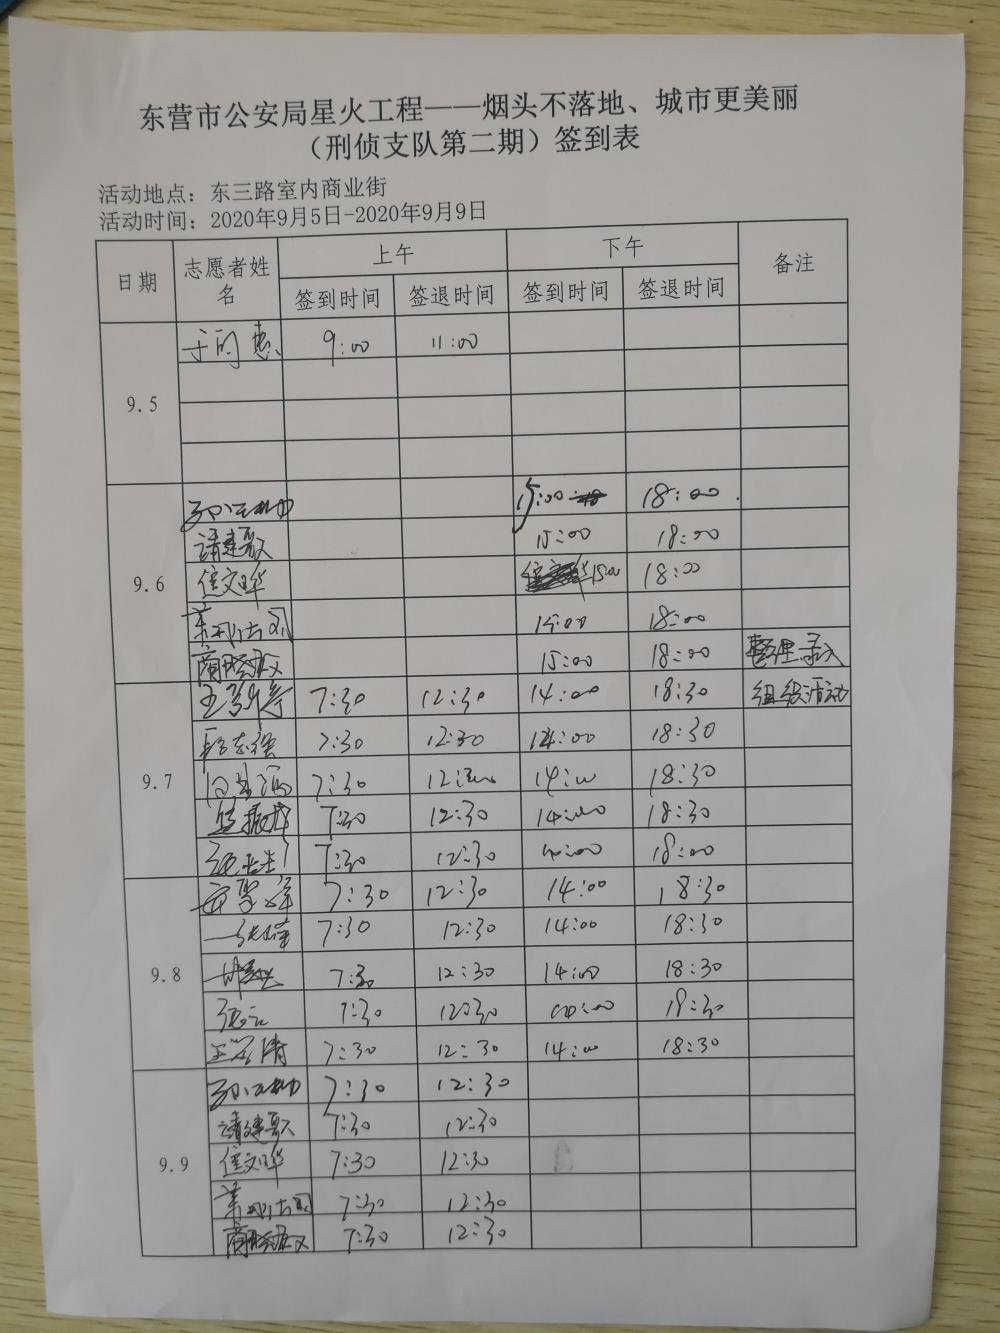 东营市公安局星火工程——烟头不落地、城市更美丽
（刑侦支队第二期）签到表
活动地点：东三路室内商业街
活动时间：2020年9月5日-2020年9月9日
日期 志愿者姓名 上午 下午 备注
签到时间 签退时间 签到时间 签退时间
9.5
9:00 11:00
9.6
15:00 18:00
15:00 18:00
信文晔 15:00 18:00
15:00 18:00
15:00 18:00 整理录入
9.7
7:30 12:30 14:00 18:30 组织活动
7:30 12:30 14:00 18:30
7:30 12:30 14:00 18:30
7:30 12:30 14:00 18:30
7:30 12:30 14:00 18:00
9.8
7:30 12:30 14:00 18:30
7:30 12:30 14:00 18:30
7:30 12:30 14:00 18:30
7:30 12:30 14:00 18:30
7:30 12:30 14:00 18:30
9.9
7:30 12:30
7:30 12:30
信文晔 7:30 12:30
7:30 12:30
7:30 12:30